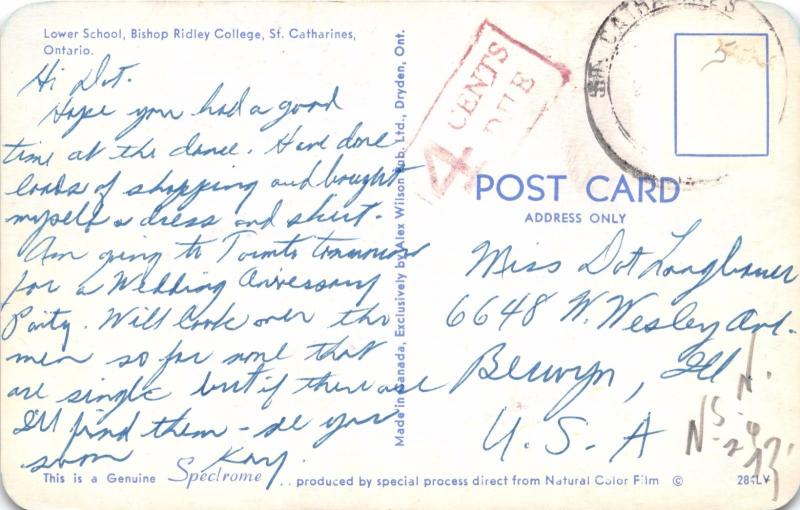 Lower School, Bishop Ridley College, St. Catharines,
Ontario.
Hi Dot.
Hope you had a good
time at the dance. Have done
loads of shopping and bought
myself a dress and skirt.
Am going to Toronto tomorrow
for a Wedding Aniversary
Party. Will look over the
men so far none that
are single but if there are
I'll find them - see you
soon Kay.
Made in Canada, Exclusively by Alex Wilson Pub. Ltd., Dryden, Ont.
4 CENTS
DUE
ST. CATHARINES
POST CARD
ADDRESS ONLY
Miss Dot Longbauer
6648 W. Wesley Ave.
Berwyn, Ill
U. S. A
This is a Genuine Spectrome .. produced by special process direct from Natural Color Film ©
284LV